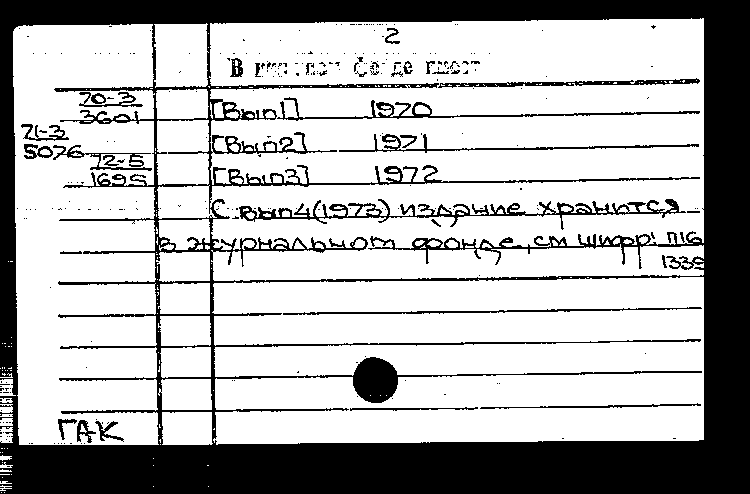 2
В книжном фонде имеет
70-3
3601 [Вып1] 1970
71-3
5076 [Вып2] 1971
72-5
1695 [Вып3] 1972
С вып4(1973) издание хранится
в журнальном фонде, см шифр: П16
1339
ГАК